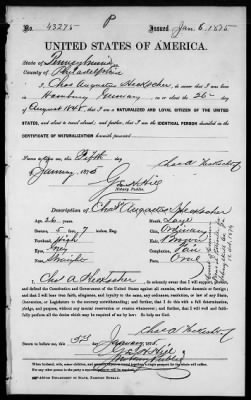 P
No. 43275 Issued Jan. 6. 1875
UNITED STATES OF AMERICA.
State of Pennsylvania
County of Philadelphia
I, Chas Augustus Heckscher, do swear that I was born
in Hamburg Germany on or about the 26
day of August 1848, that I am a NATURALIZED AND LOYAL CITIZEN OF THE UNITED
STATES, and about to travel abroad; and further, that I am the IDENTICAL PERSON described in the
CERTIFICATE OF NATURALIZATION herewith presented.
Sworn to before me, this Fifth
day of January, 1875
Geo H Hill
Notary Public.
Chas A Heckscher
Description of Chas Augustus Heckscher
Age, 26 years. Mouth, Large
Stature, 5 feet, 7 inches, Eng. Chin, Ordinary
Forehead, High Hair, Brown
Eyes, Complexion, Fair
Nose, Straight Face, Oval
I, Chas A Heckscher, do solemnly swear that I will support, protect,
and defend the Constitution and Government of the United States against all enemies, whether domestic or foreign;
and that I will bear true faith, allegiance, and loyalty to the same, any ordinance, resolution, or law of any State,
Convention, or Legislature to the contrary notwithstanding; and further, that I do this with a full determination,
pledge, and purpose, without any mental reservation or evasion whatsoever; and, further, that I will well and faithfully
perform all the duties which may be required of me by law. So help me God.
Chas A Heckscher
Sworn to before me, this 5th
day of January, 1875
Geo H Hill
Notary Public